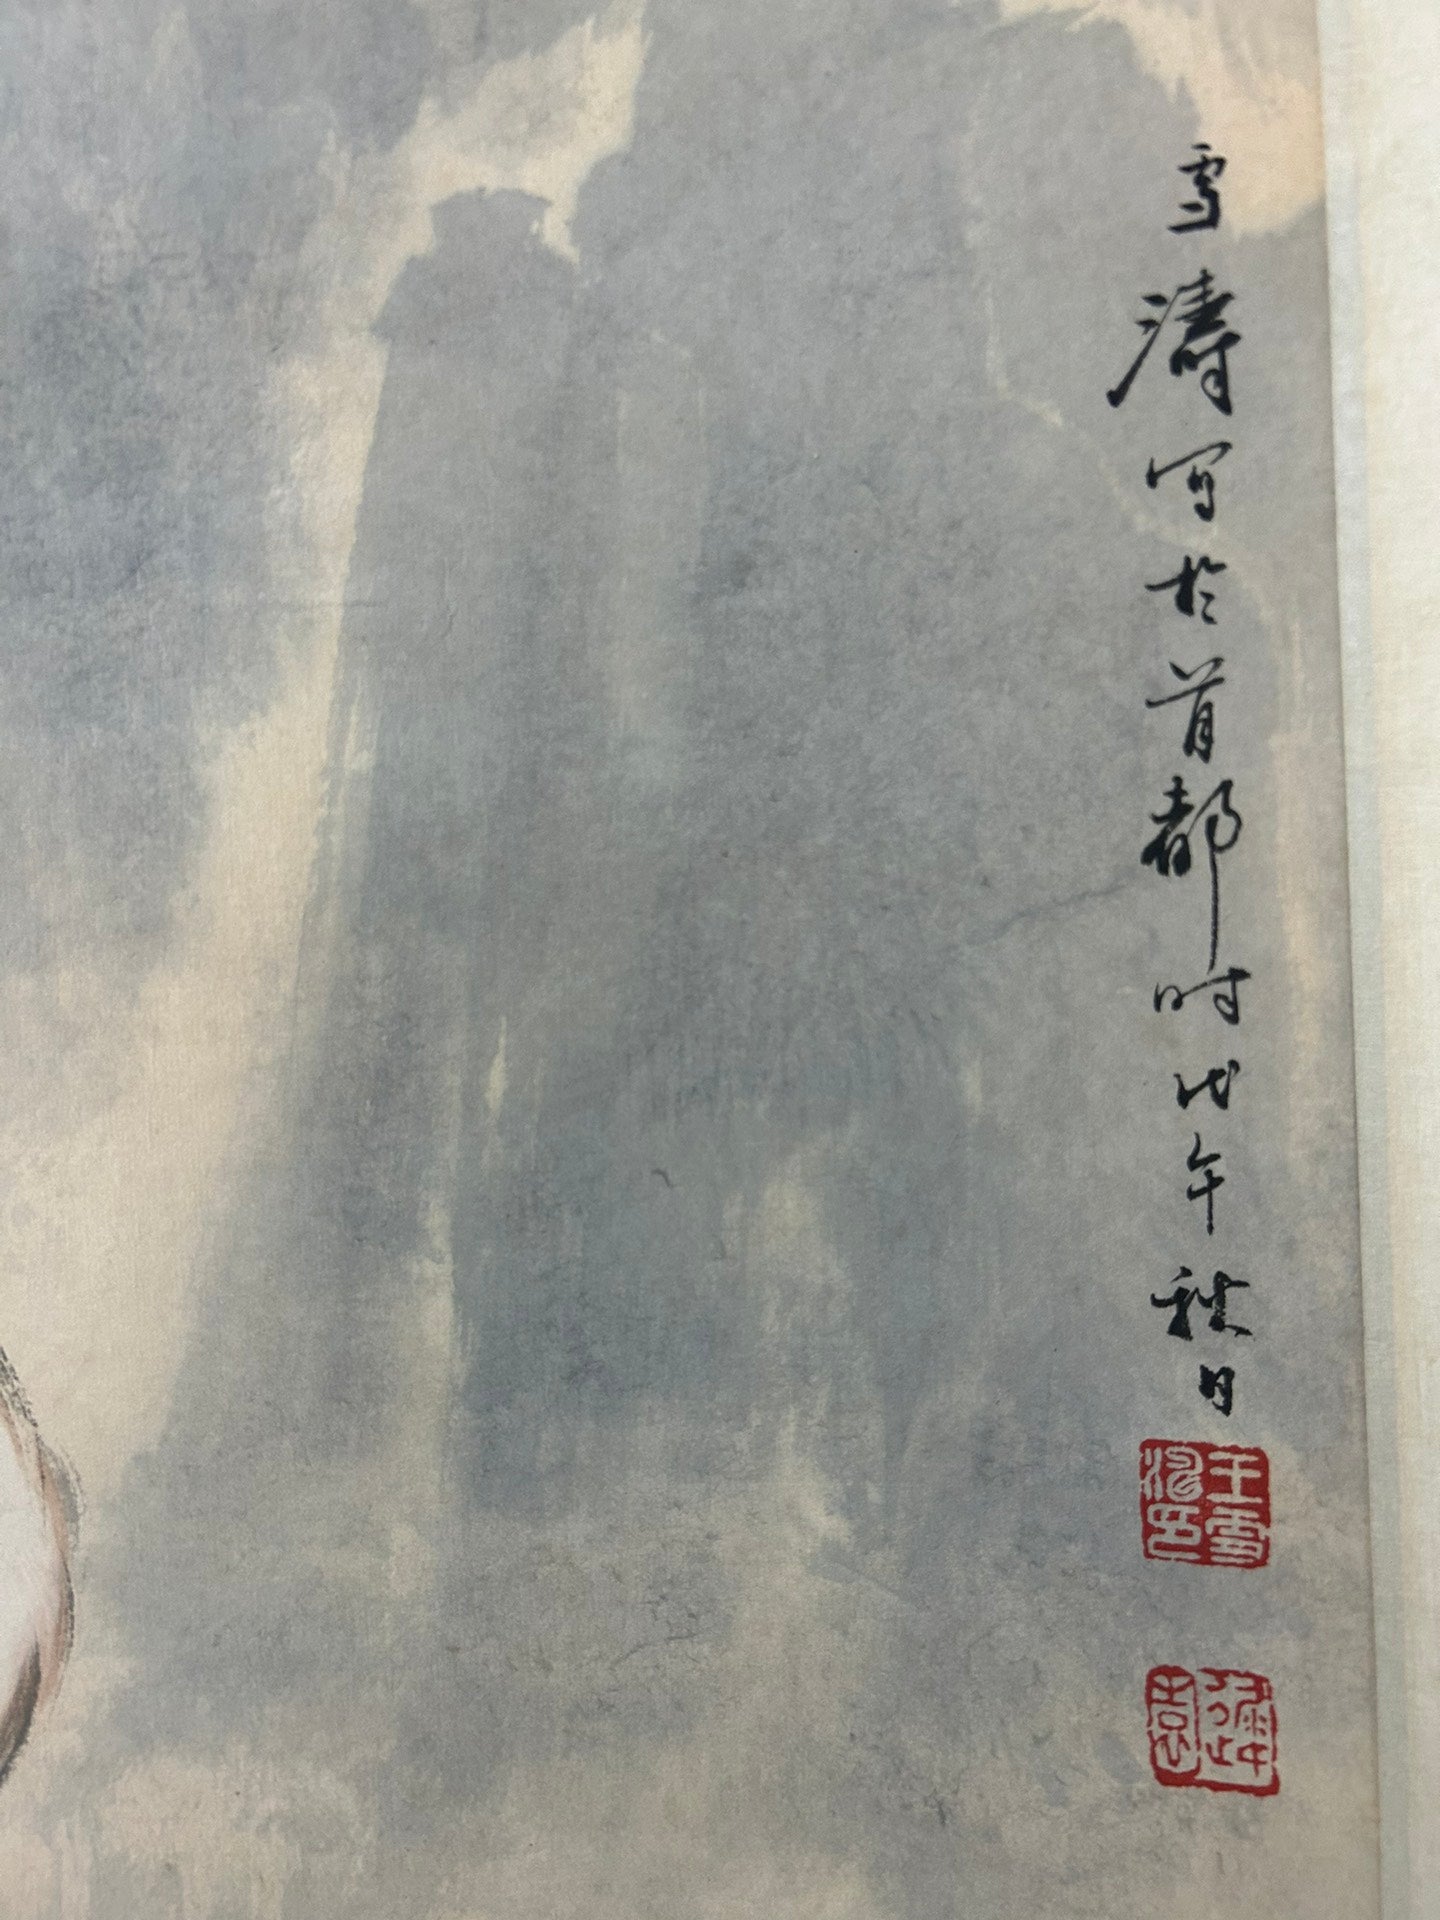 雪濤写於首都时戊午秋日
王雪濤印